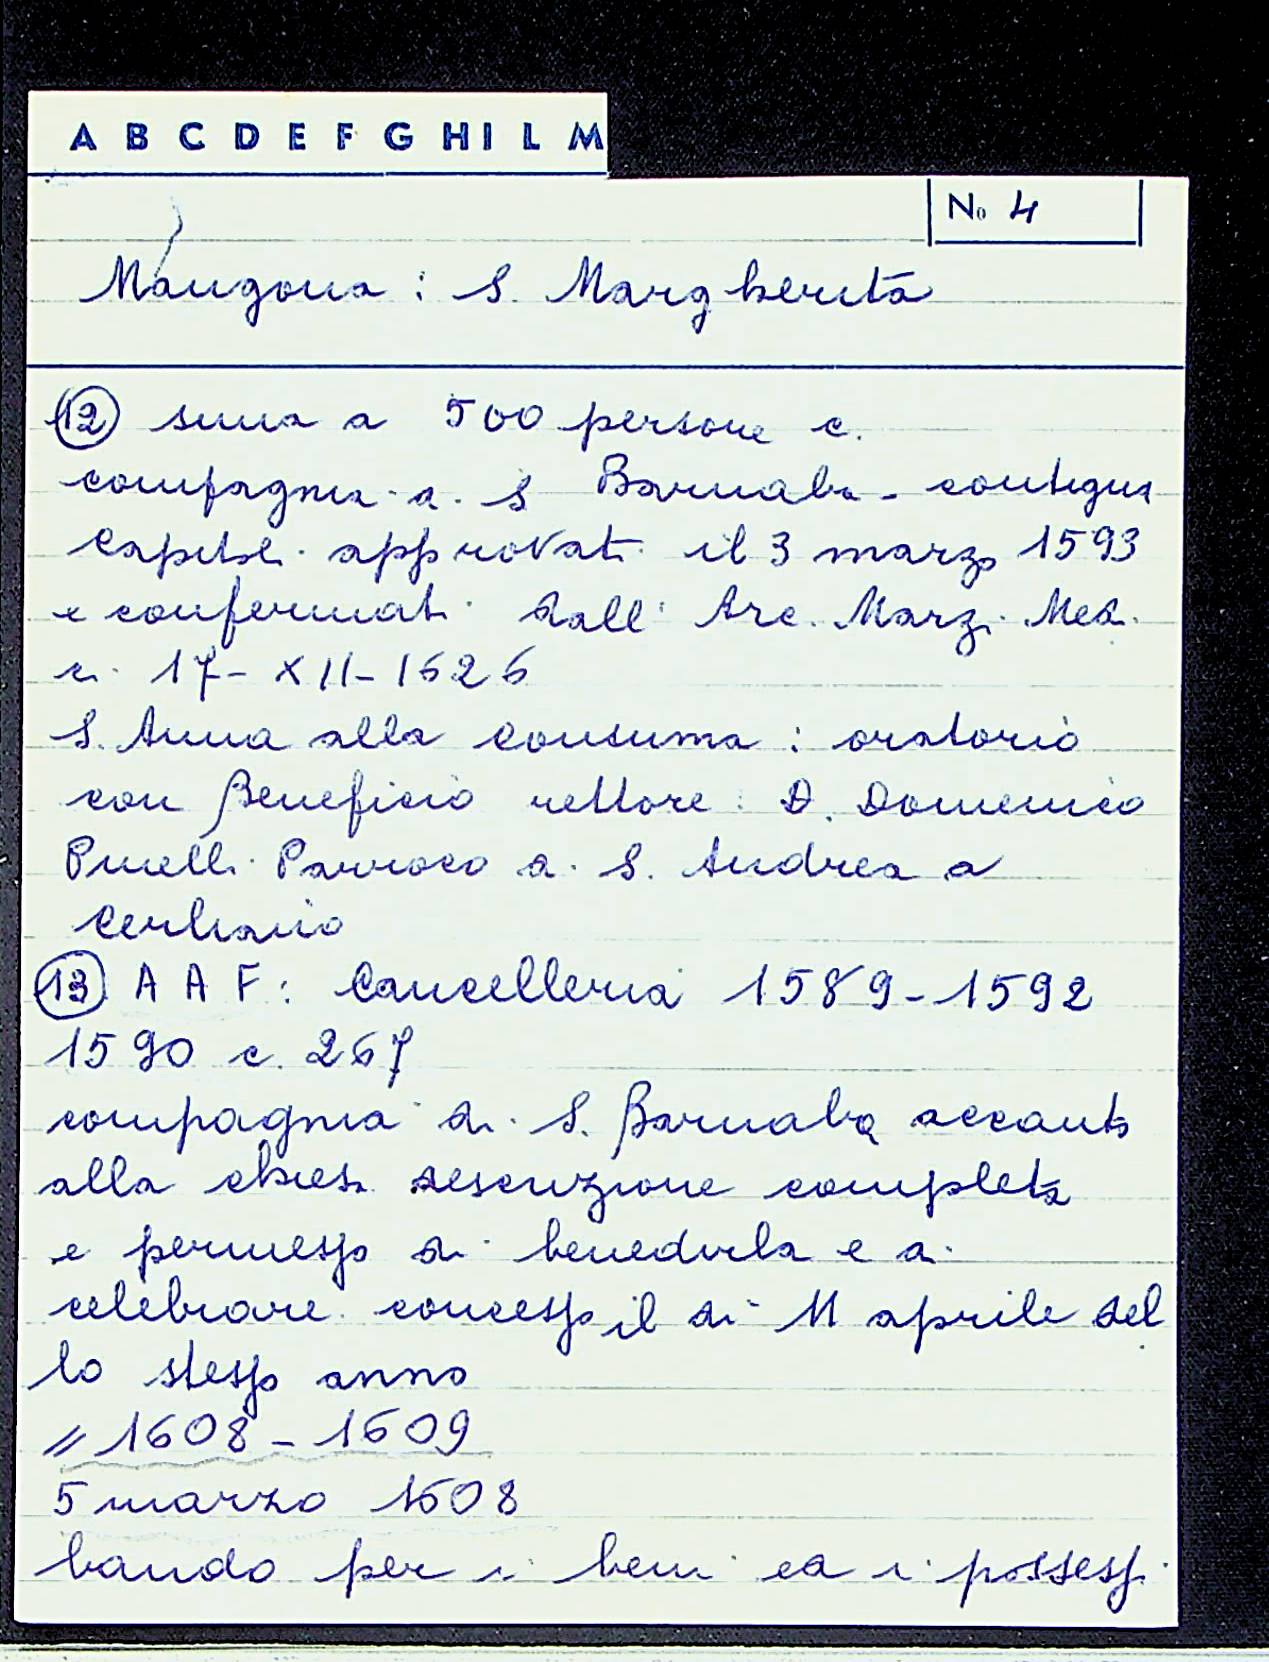 A B C D E F G H I L M
No 4
Mangona : S. Margherita
12 suna a 500 persone c.
compagnia di S Barnaba - contigua
capitoli approvati il 3 marzo 1593
e confermati dall' Arc. Marzi Med.
il 17 - XII - 1626
S. Anna alla Consuma : oratorio
con Beneficio rettore : D. Domenico
Pinelli Parroco di S. Andrea a
Cerliano
13 A A F : Cancelleria 1589 - 1592
1590 c. 267
compagnia di S. Barnaba accanto
alla chiesa descrizione completa
e permesso di benedirla e di
celebrare concesso il di 11 aprile del
lo stesso anno
// 1608 - 1609
5 marzo 1608
bando per i beni ed i possessi